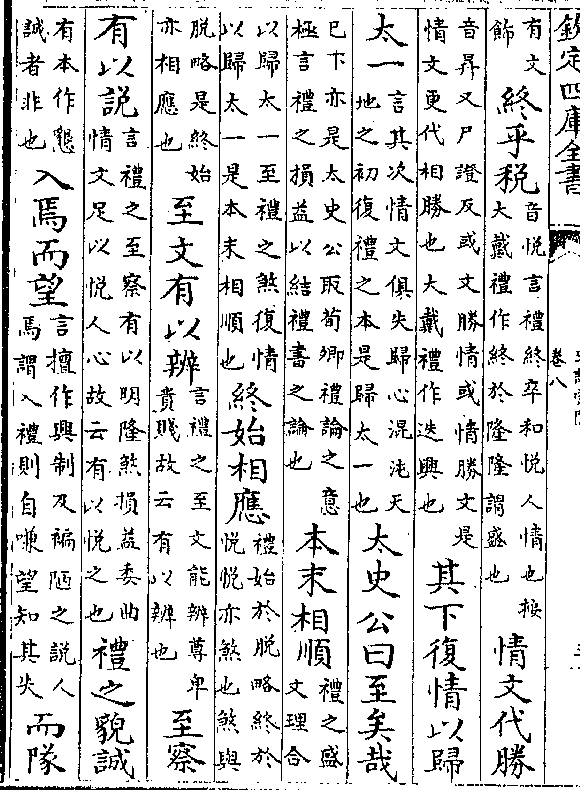 欽定四庫全書
卷八
有文
飾
終乎税
音悦言禮終卒和悦人情也按
大戴禮作終於隆隆謂盛也
情文代勝
音昇又尸證反或文勝情或情勝文是
情文更代相勝也大戴禮作迭興也
其下復情以歸
太一
言其次情文俱失歸心混沌天
地之初復禮之本是歸太一也
太史公曰至矣哉
已下亦是太史公取荀卿禮論之意
極言禮之損益以結禮書之論也
本末相順
禮之盛
文理合
以歸太一至禮之煞復情
以歸太一是本末相順也
終始相應
禮始於脫略終於
悦悦亦煞也煞與
脫略是終始
亦相應也
至文有以辨
言禮之至文能辨尊卑
貴賤故云有以辨也
至察
有以説
言禮之至察有以明隆煞損益委曲
情文足以悦人心故云有以悦之也
禮之貌誠
有本作懇
誠者非也
入焉而望
言擅作典制及褊陋之説入
焉謂入禮則自嗛望知其失
而隊